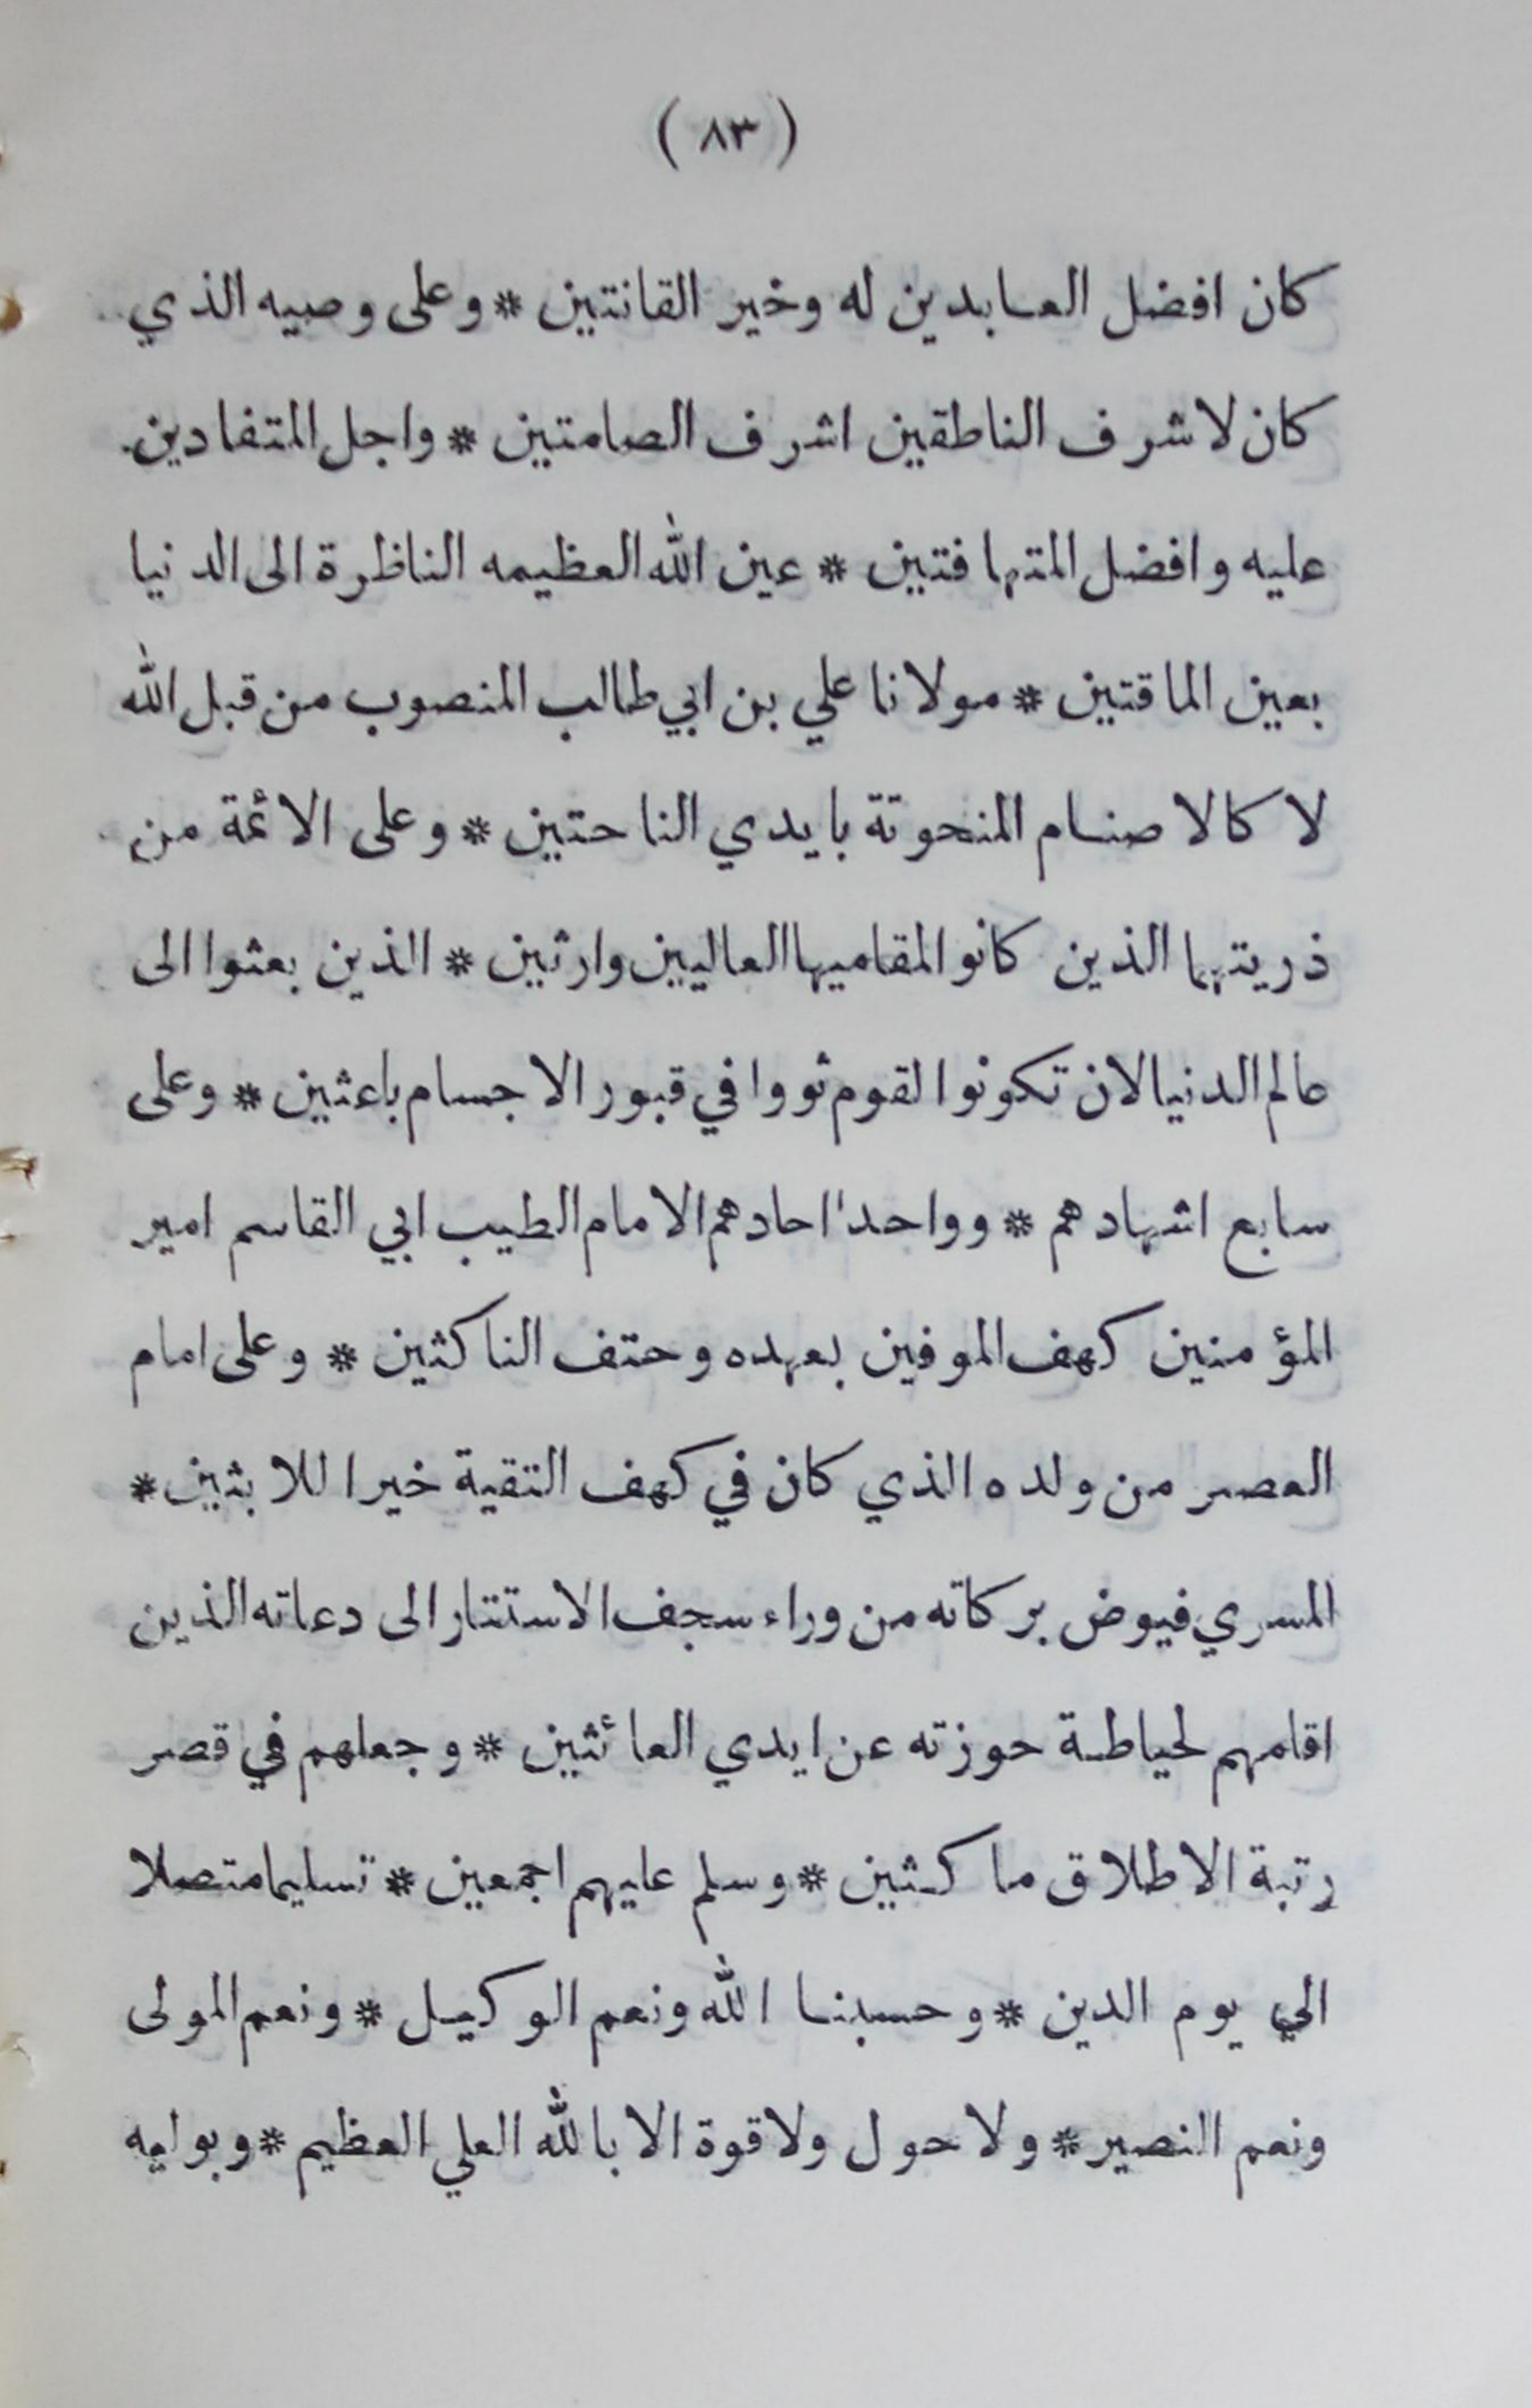 ( ٨٣ )
كان افضل العابدين له وخير القانتين * وعلى وصيه الذي
كان لاشرف الناطقين اشرف الصامتين * واجل المتفادين
عليه وافضل المتهافتين * عين الله العظيمه الناظرة الى الدنيا
بعين الماقتين * مولانا علي بن ابي طالب المنصوب من قبل الله
لا كالاصنام المنحوتة بايدي الناحتين * وعلى الائمة من
ذريتهما الذين كانوا لمقاميهما العاليين وارثين * الذين بعثوا الى
عالم الدنيا لان تكونوا لقوم ثووا في قبور الاجسام باعثين * وعلى
سابع اشهادهم * وواحد احادهم الامام الطيب ابي القاسم امير
المؤمنين كهف الموفين بعهده وحتف الناكثين * وعلى امام
العصر من ولده الذي كان في كهف التقية خير اللابثين *
المسري فيوض بركاته من وراء سجف الاستتار الى دعاته الذين
اقامهم لحياطة حوزته عن ايدي العائثين * وجعلهم في قصر
رتبة الاطلاق ماكثين * وسلم عليهم اجمعين * تسليما متصلا
الي يوم الدين * وحسبنا الله ونعم الوكيل * ونعم المولى
ونعم النصير * ولا حول ولا قوة الا بالله العلي العظيم * وبوليه